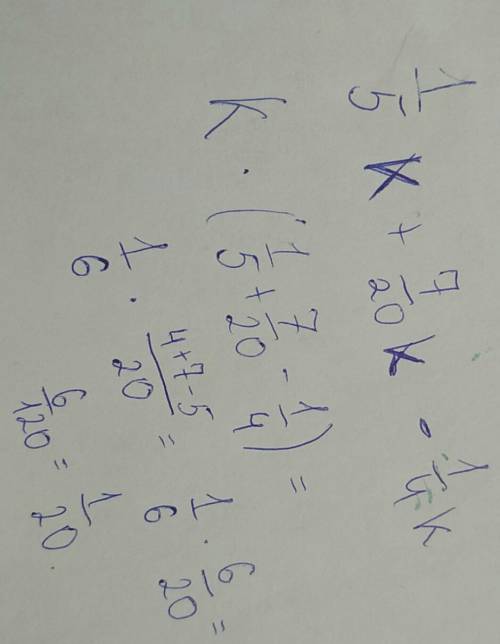 1/5 K + 7/20 K - 1/4 K
K · (1/5 + 7/20 - 1/4) =
1/6 · (4+7-5)/20 = 1/6 · 6/20 =
6/120 = 1/20.